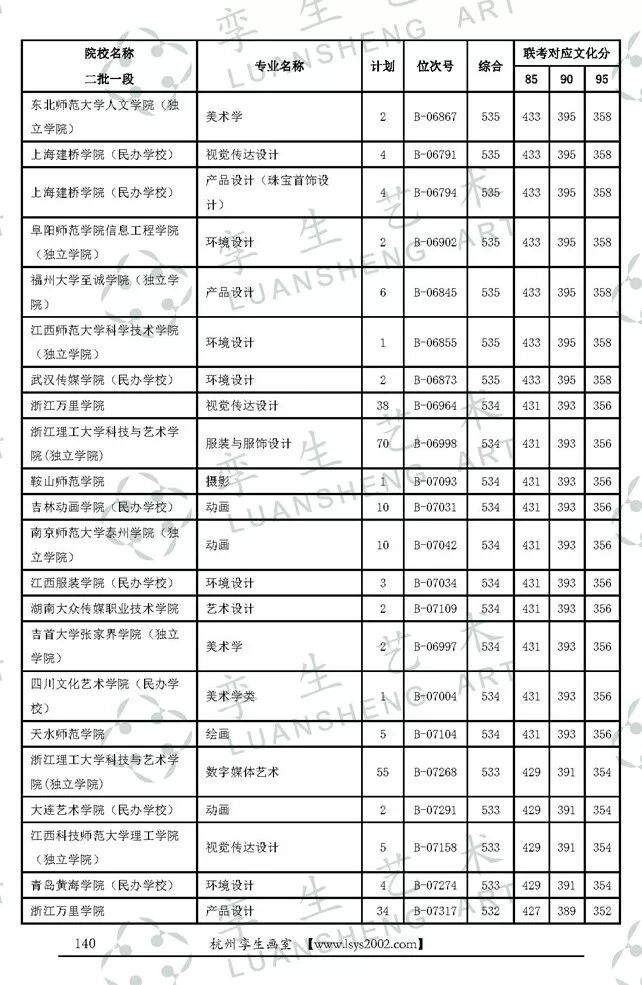 院校名称 二批一段 专业名称 计划 位次号 综合 联考对应文化分
85 90 95
东北师范大学人文学院（独立学院） 美术学 2 B-06867 535 433 395 358
上海建桥学院（民办学校） 视觉传达设计 4 B-06791 535 433 395 358
上海建桥学院（民办学校） 产品设计（珠宝首饰设计） 4 B-06794 535 433 395 358
阜阳师范学院信息工程学院（独立学院） 环境设计 2 B-06902 535 433 395 358
福州大学至诚学院（独立学院） 产品设计 6 B-06845 535 433 395 358
江西师范大学科学技术学院（独立学院） 环境设计 1 B-06855 535 433 395 358
武汉传媒学院（民办学校） 环境设计 2 B-06873 535 433 395 358
浙江万里学院 视觉传达设计 38 B-06964 534 431 393 356
浙江理工大学科技与艺术学院(独立学院) 服装与服饰设计 70 B-06998 534 431 393 356
鞍山师范学院 摄影 1 B-07093 534 431 393 356
吉林动画学院（民办学校） 动画 10 B-07031 534 431 393 356
南京师范大学泰州学院（独立学院） 动画 10 B-07042 534 431 393 356
江西服装学院（民办学校） 环境设计 3 B-07034 534 431 393 356
湖南大众传媒职业技术学院 艺术设计 2 B-07109 534 431 393 356
吉首大学张家界学院（独立学院） 美术学 2 B-06997 534 431 393 356
四川文化艺术学院（民办学校） 美术学类 1 B-07004 534 431 393 356
天水师范学院 绘画 5 B-07104 534 431 393 356
浙江理工大学科技与艺术学院(独立学院) 数字媒体艺术 55 B-07268 533 429 391 354
大连艺术学院（民办学校） 动画 2 B-07291 533 429 391 354
江西科技师范大学理工学院（独立学院） 视觉传达设计 5 B-07158 533 429 391 354
青岛黄海学院（民办学校） 环境设计 4 B-07274 533 429 391 354
浙江万里学院 产品设计 34 B-07317 532 427 389 352
140 杭州孪生画室 【www.lsys2002.com】
孪生艺术
LUANSHENG ART
孪生艺术
LUANSHENG ART
孪生艺术
LUANSHENG ART
孪生艺术
LUANSHENG ART
孪生艺术
LUANSHENG ART